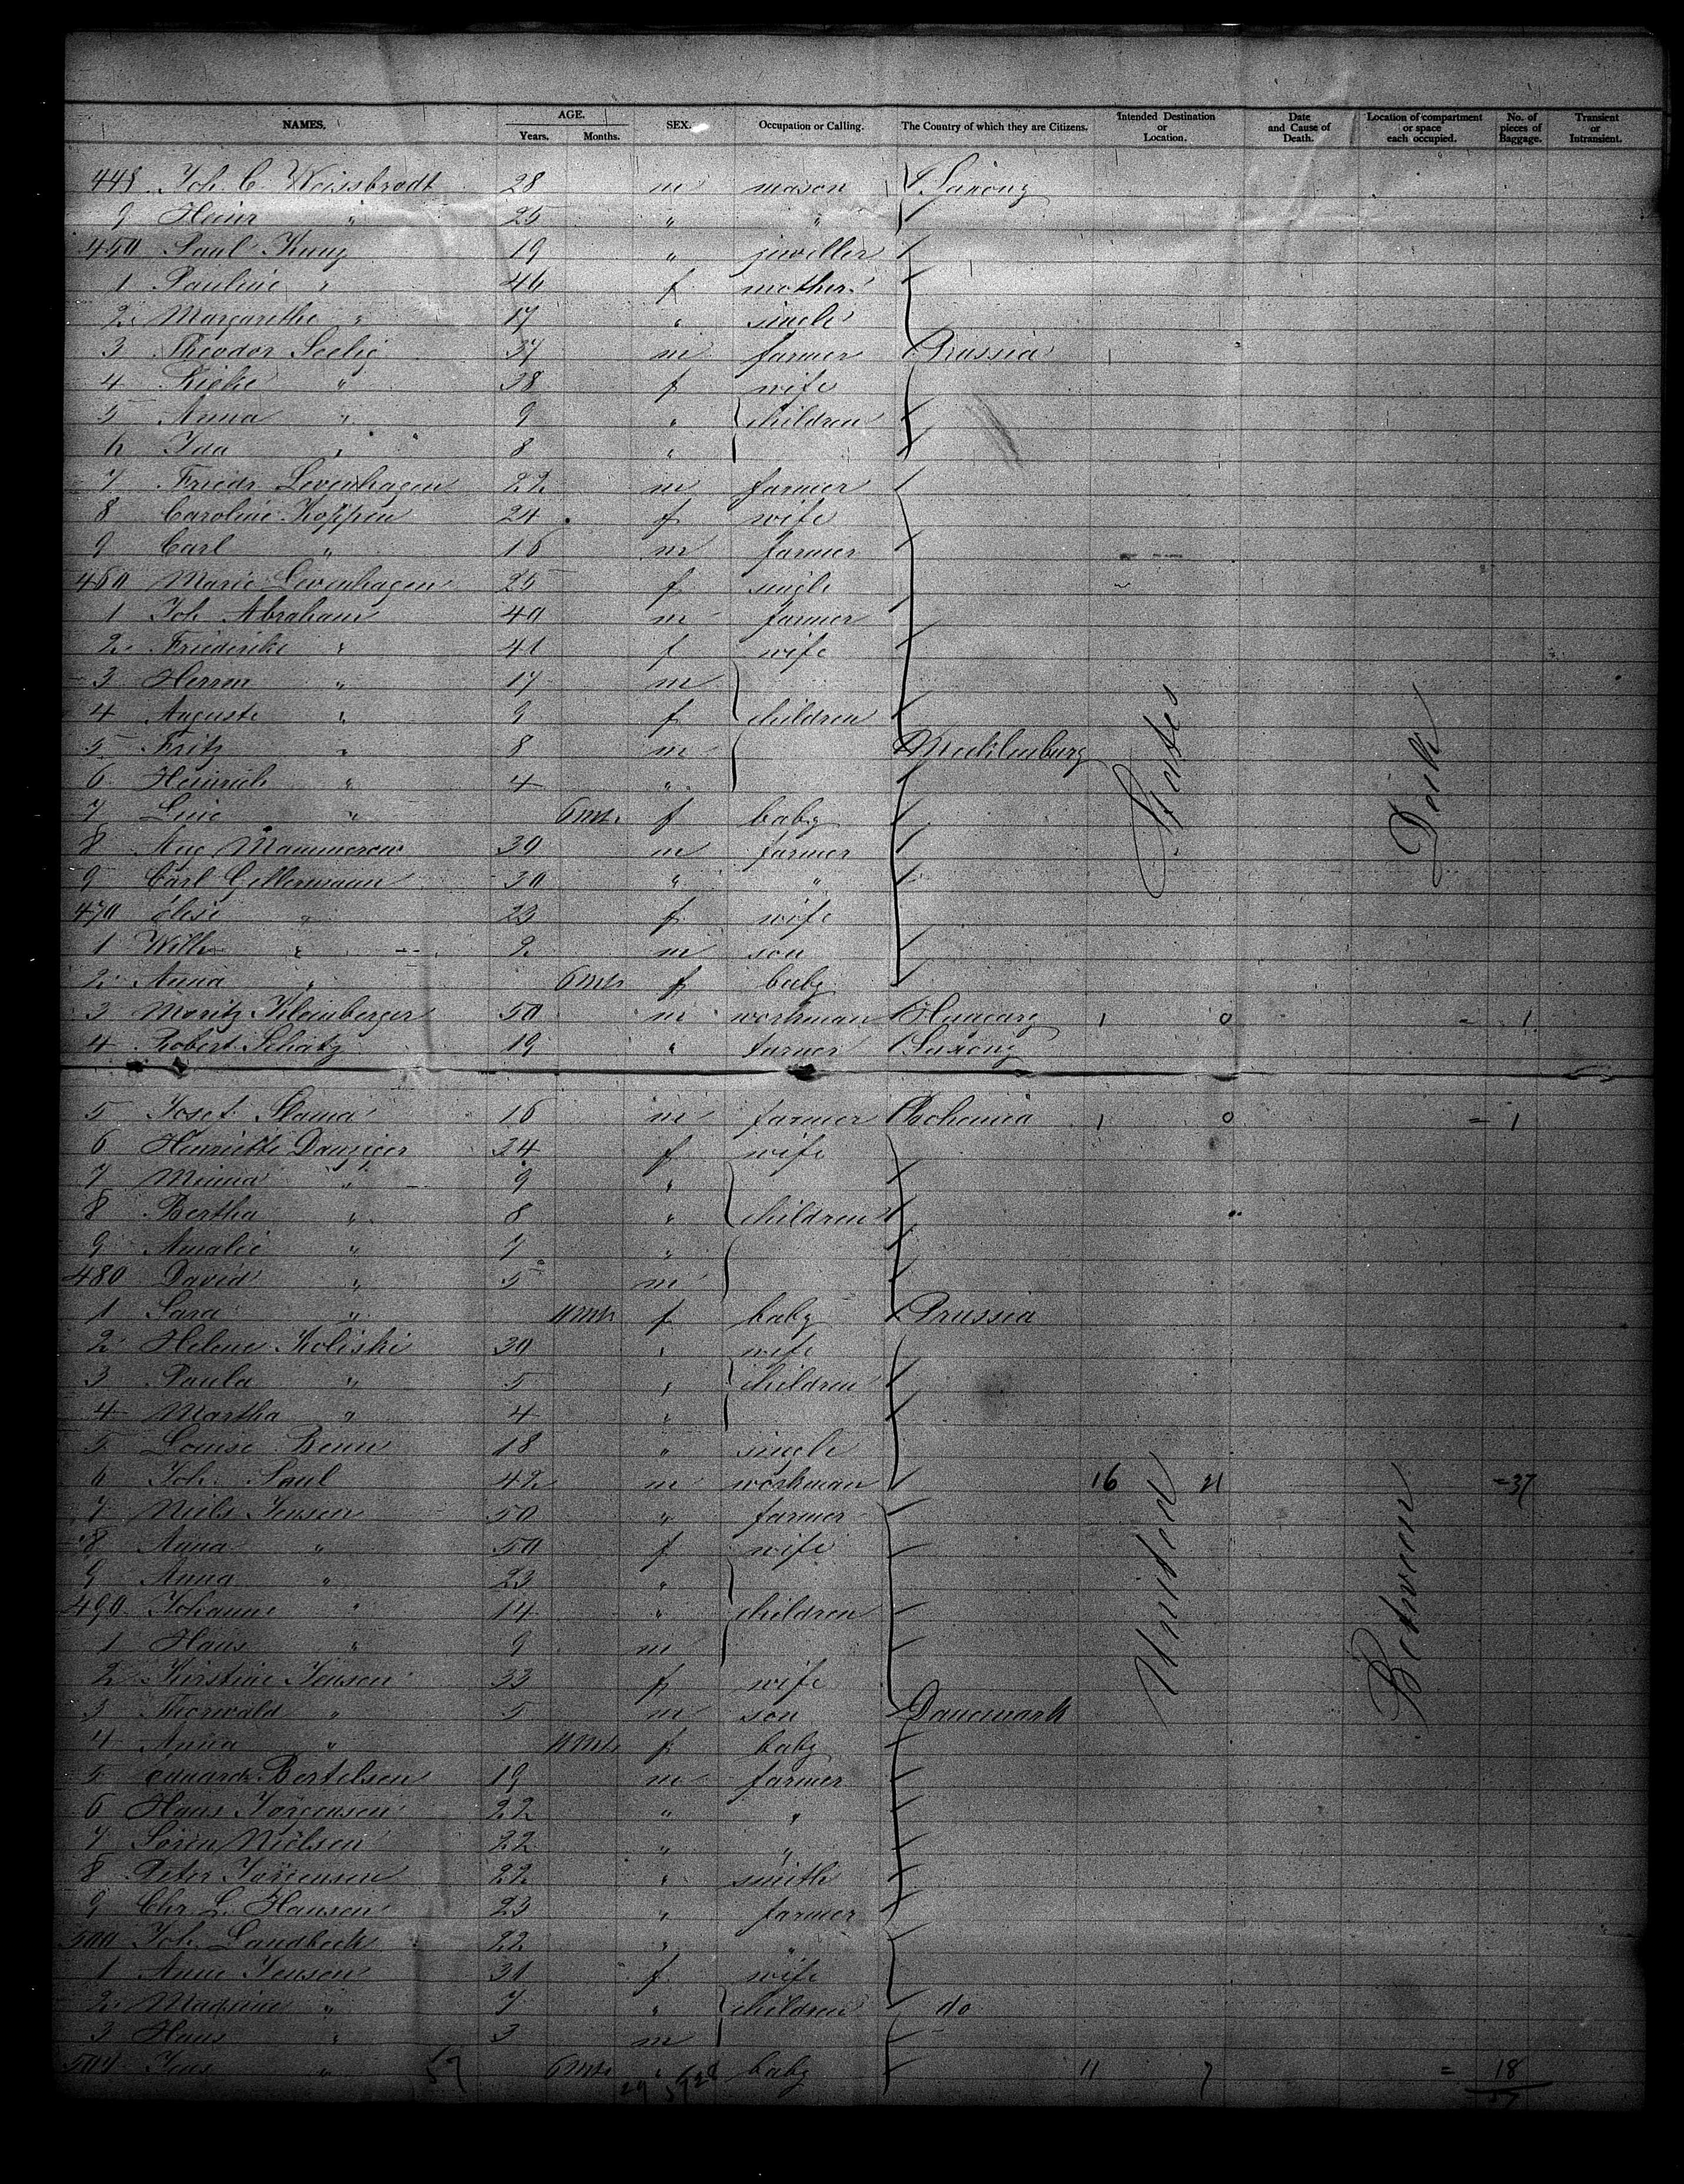 NAMES. AGE. Years. Months. SEX. Occupation or Calling. The Country of which they are Citizens. Intended Destination or Location. Date and Cause of Death. Location of compartment or space each occupied. No. of pieces of Baggage. Transient or Intransient.
448 Joh. C. Weissbrodt 28 m mason Saxony
9 Heinr " 25 " "
450 Paul Kunz 19 " jeweller
1 Pauline " 46 f mother
2 Margarethe " 17 " single
3 Theodor Seelig 37 m farmer Prussia
4 Rieke " 38 f wife
5 Anna " 9 " children
6 Ida " 8 "
7 Friedr Levenhagen 22 m farmer
8 Caroline Koppen 24 f wife
9 Carl " 16 m farmer
460 Marie Levenhagen 25 f single
1 Joh Abraham 40 m farmer
2 Friederike " 41 f wife
3 Herrm " 17 m
4 Auguste " 9 f children
5 Fritz " 8 m Mecklenburg
6 Heinrich " 4 "
7 Line " 6 Mts. f baby
8 30 m farmer
9 Carl Gellermann 30 " "
470 Elise " 23 f wife
1 Wilh " 2 m son
2 Anna " 6 Mts f baby
3 Moritz Kleinberger 50 m workman Hungary 1 0 = 1
4 Robert Schatz 19 " farmer Saxony
5 Josef Slama 16 m farmer Bohemia 1 0 = 1
6 Henriette Danziger 34 f wife
7 Minna " 9 "
8 Bertha " 8 " children
9 Amalie " 7 "
480 David " 5 m
1 Sara " 11 Mts f baby Prussia
2 Helene Koliski 30 " wife
3 Paula " 5 " children
4 Martha " 4 "
5 Louise Benn 18 " single
6 Joh. Saul 42 m workman 16 21 = 37
7 Niels Jensen 50 " farmer
8 Anna " 50 f wife
9 Anna " 23 "
490 Johanne " 14 " children
1 Hans " 9 m
2 Kirstine Jensen 33 f wife
3 Thorwald " 5 m son Danemark
4 Anna " 11 Mts f baby
5 Eduard Bertelsen 19 m farmer
6 Hans Jörgensen 22 " "
7 Sören Nielsen 22 " "
8 Peter Jörgensen 22 " smith
9 Chr. L. Hansen 23 " farmer
500 Joh. Landbeck 22 " "
1 Anne Jensen 31 f wife
2 Madsine " 7 " children do
3 Hans " 3 m
504 Jens " 57 6 Mts " baby 11 7 = 18
29 57 28 57
United States
Between Deck